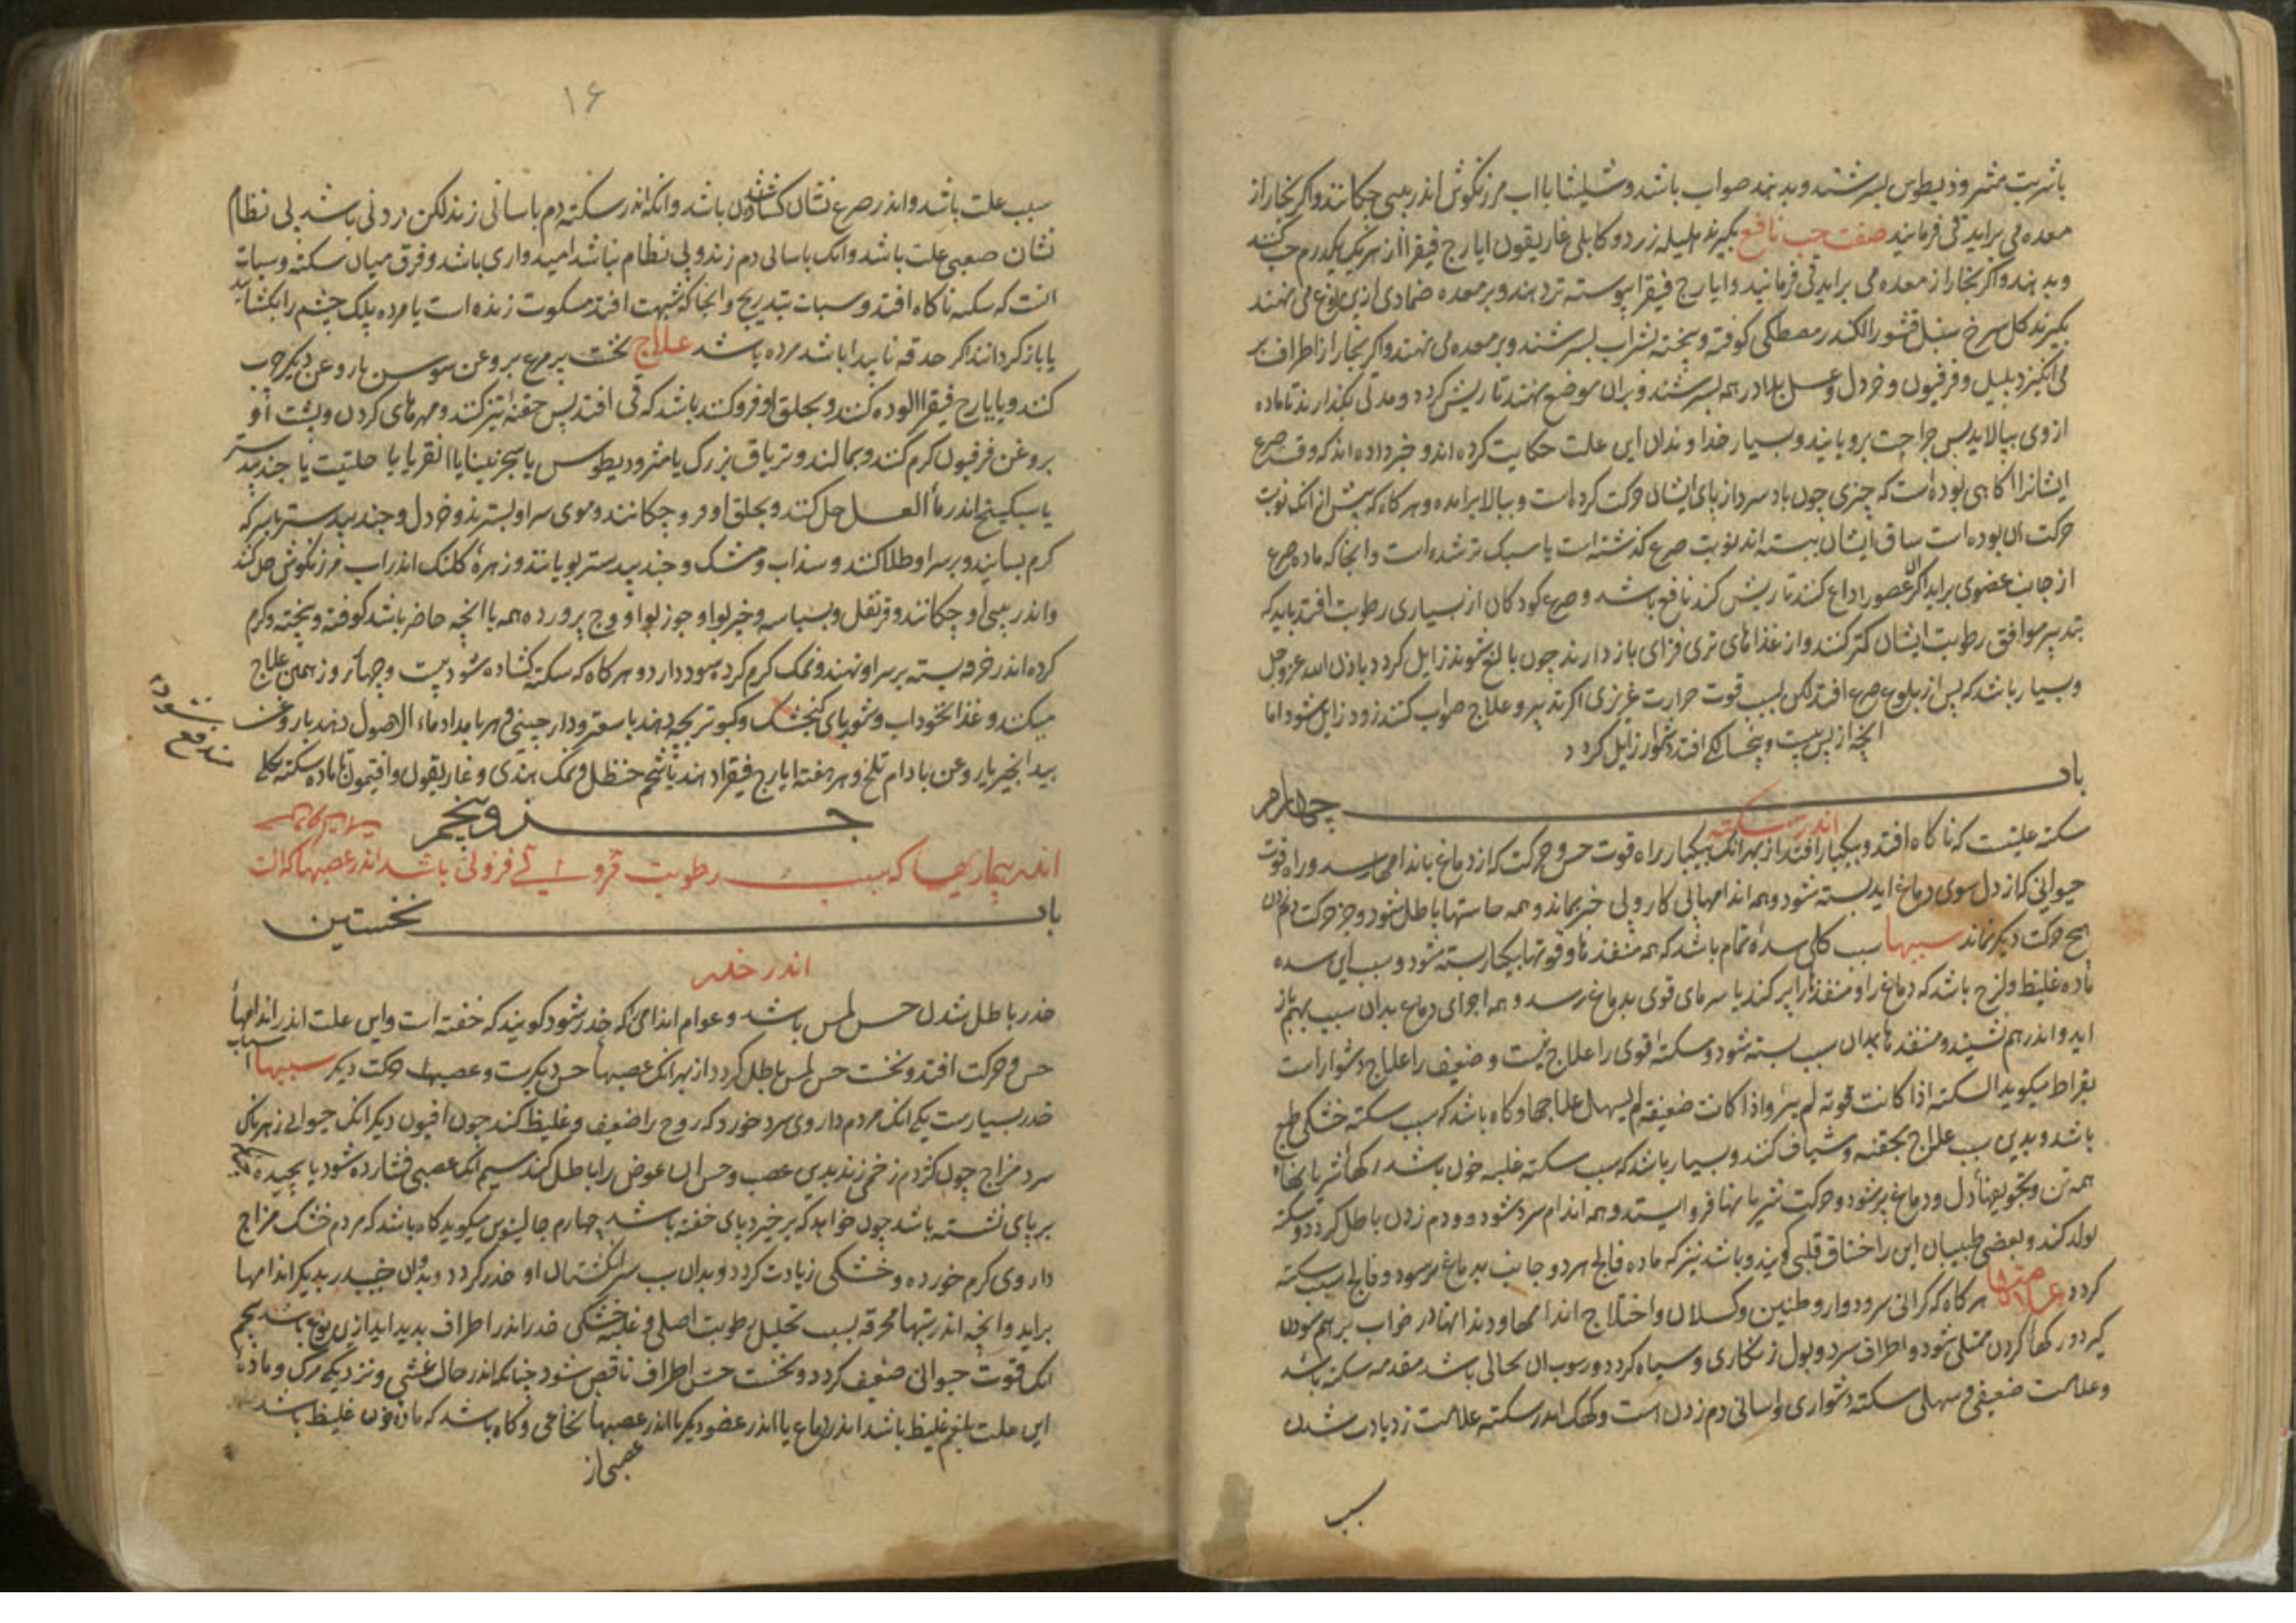 باشربت مثرودیطوس بسرشند و بدهند صواب باشد و شلیثا با اب مرزنکوش اندر بینی چکانند و اکر بخار از
معده می براید قی فرمایند صفت حب نافع بکیرند هلیله زرد و کابلی غاریقون ایارج فیقرا از هر یک یکدرم حب کنند
و بدهند و اکر بخار از معده می براید قی فرمایند و ایارج فیقرا پیوسته تر دهند و بر معده ضمادی ازین نوع می نهند
بکیرند کل سرخ سنبل قشور الکندر مصطکی کوفته و بیخته بشراب بسرشند و بر معده می نهند و اکر بخار از اطراف بر
می انکیزد بلیل و فرفیون و خردل و عسل بلادر بهم بسرشند و بران موضع نهند تا ریش کردد و مدتی بکذارند تا ماده
ازوی بپالاید پس جراحت برویانند و بسیار خداوندان این علت حکایت کرده اند و خبر داده اند که وقت صرع
ایشانرا اکاهی بوده است که چیزی چون باد سرد از پای ایشان حرکت کرده است و ببالا برامده و هرکاه که پیش از انک نوبت
حرکت ان بوده است ساق ایشان ببسته اند نوبت صرع کذشته است یا سبک تر شده است و انجا که ماده صرع
از جانب عضوی براید اکر ان عضو را داغ کنند تا ریش کند نافع باشد و صرع کودکان از بسیاری رطوبت افتد باید که
بتدبیر موافق رطوبت ایشان کمتر کنند و از غذاهای تری فزای باز دارند چون بالغ شوند زایل کردد باذن الله عز و جل
و بسیار باشد که پس از بلوغ صرع افتد لکن بسبب قوت حرارت غریزی اکر تدبیر و علاج صواب کنند زود زایل شود اما
انچه از پس بیست و پنجسالکی افتد دشوار زایل کردد
باب چهارم
اندر سکته
سکته علتیست که ناکاه افتد و بیکبار افتد از بهر انک بیکبار راه قوت حس و حرکت که از دماغ باندامها رسد و راه قوت
حیوانی که از دل سوی دماغ اید بسته شود و همه اندامها بی کار و بی خبر بماند و همه حاستها باطل شود و جز حرکت دم زدن
هیچ حرکت دیکر نماند سببها سبب کلی سدۀ تمام باشد که همه منفذها و قوتها بیکبار بسته شود و سبب این سده
ماده غلیظ و لزج باشد که دماغ را و منفذها را پر کند یا سرمای قوی بدماغ رسد و همه اجزای دماغ بدان سبب بهم باز
اید و اندر هم نشیند و منفذها بدان سبب بسته شود و سکته قوی را علاج نیست و ضعیف را علاج دشوار است
بقراط میکوید السکته اذا کانت قویه لم یبرٔ و اذا کانت ضعیفة لم یسهل علاجها و کاه باشد که سبب سکته خشکی طبع
باشد و بدین سبب علاج بحقنه و شیاف کنند و بسیار باشد که سبب سکته غلبه خون باشد رکها شریانها
همه تن و تجویفهاء دل و دماغ پر شود و حرکت شریانها فرو ایستد و همه اندام سرد شود و دم زدن باطل کردد و سکته
تولد کند و بعضی طبیبان این را خناق قلبی کویند و باشد نیز که ماده فالج هر دو جانب بدماغ بر سود و فالج سبب سکته
کردد علامتها هرکاه که کرانی سر و دوار و طنین و کسلان و اختلاج اندامها و دندانها در خواب برهم سودن
کیرد و رکها کردن ممتلی شود و اطراف سرد و بول زنکاری و سیاه کردد و رسوب ان نخالی باشد مقدمه سکته باشد
و علامت ضعیفی و سهلی سکته دشواری و اسانی دم زدن است و کفک اندر سکته علامت زیادت شدن
سبب
۱۶
سبب علت باشد و اندر صرع نشان کشاده شدن باشد و انکه اندر سکته دم باسانی زند لکن در وی باشد بی نظام
نشان صعبی علت باشد و انک باسانی دم زند و بی نظام نباشد امیدواری باشد و فرق میان سکته و سبات
انست که سکته ناکاه افتد و سبات بتدریج و انجا که شبهت افتد مسکوت زنده است یا مرده پلک چشم را بکشایند
یا باز کردانند اکر حدقه ناپیدا باشد مرده باشد علاج نخست پر مرغ بروغن سوسن یا روغن دیکر چرب
کنند و بایارج فیقرا الوده کنند و بحلق او فرو کنند باشد که قی افتد پس حقنۀ تیز کنند و مهرهای کردن و پشت او
بروغن فرفیون کرم کنند و بمالند و تریاق بزرک یا مثرودیطوس یا سجزنیا یا انقردیا یا حلتیت یا جندبیدستر
یا سکبینج اندر ماء العسل حل کنند و بحلق او فرو چکانند و موی سر او بسترند و خردل و جندبیدستر بسرکه
کرم بسایند و بر سر او طلا کنند و سداب و مشک و جندبیدستر بویانند و زهرۀ کلنک اندر اب مرزنکوش حل کنند
و اندر بینی او چکانند و قرنفل و بسباسه و خیربوا و جوزبوا و وج پرورده همه با انچه حاضر باشد کوفته و بیخته و کرم
کرده اندر خرقه بسته بر سر او نهند و نمک کرم کرده سود دارد و هرکاه که سکته کشاده شود بیست و چهار روز همین علاج
میکنند و غذا نخوداب و شوربای کنجشک و کبوتر بچه دهند با سعتر و دارچینی و هر بامداد ماء الاصول دهند با روغن
بید انجیر یا روغن بادام تلخ و هر هفته ایارج فیقرا دهند با شحم حنظل و نمک هندی و غاریقون و افتیمون تا ماده سکته بکلی
مندفع شود
جزو پنجم
اندر بیماریها که سبب رطوبت فزونی باشد اندر عصبها که الت
باب نخستین
اندر خدر
خدر باطل شدن حس لمس باشد و عوام اندامی را که خدر شود کویند که خفته است و این علت اندر اندامها
حس و حرکت افتد و نخست حس لمس باطل کردد از بهر انک عصبها حس دیکرست و عصبها حرکت دیکر سببها اسباب
خدر بسیارست یکی انک مردم داروی سرد خورد که روح را ضعیف و غلیظ کند چون افیون دیکر انک حیوانی زهرناک
سرد مزاج چون کژدم زخمی زند بدین عصب و حس ان عوض را باطل کند سیم انک عصبی فشارده شود یا پیچیده
بر پای نشسته باشد چون خواهد که برخیزد پای خفته باشد چهارم جالینوس میکوید کاه باشد که مردم خشک مزاج
داروی کرم خورده و خشکی زیادت کردد و بدان سبب سر انکشتان او خدر کردد و بدان خدر بدیکر اندامها
براید و انچه اندر تبها محرقه بسبب تحلیل رطوبت اصلی و غلبه خشکی خدر اندر اطراف پدید اید ازین نوع باشد پنجم
انک قوت حیوانی ضعیف کردد و نخست حس اطراف ناقص شود چنانک اندر حال غشی و نزدیکی مرک و ماده
این علت بلغم غلیظ باشد اندر دماغ یا اندر عضو دیکر یا اندر عصبها نخاعی و کاه باشد که ماده خون غلیظ باشد
عصبی از